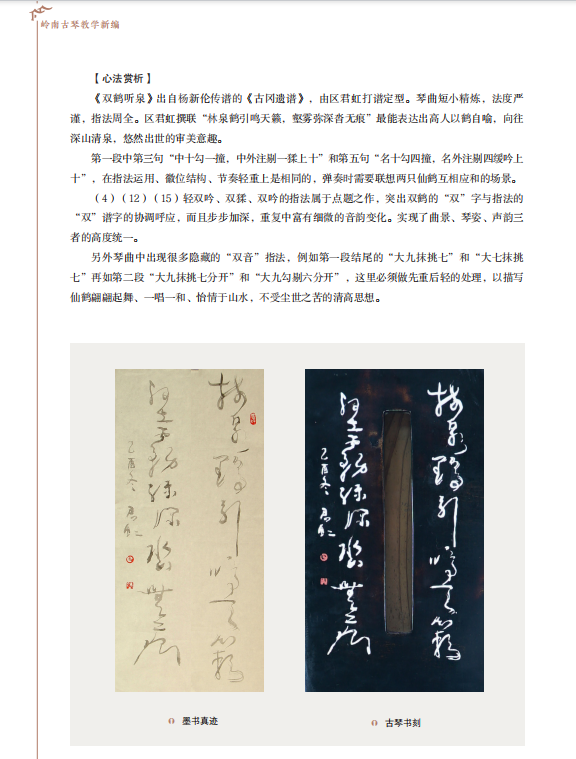 岭南古琴教学新编
【心法赏析】
《双鹤听泉》出自杨新伦传谱的《古冈遗谱》，由区君虹打谱定型。琴曲短小精炼，法度严
谨，指法周全。区君虹撰联“林泉鹤引鸣天籁，壑雾弥深杳无痕”最能表达出高人以鹤自喻，向往
深山清泉，悠然出世的审美意趣。
第一段中第三句“中十勾一撞，中外注剔一猱上十”和第五句“名十勾四撞，名外注剔四缓吟上
十”，在指法运用、徽位结构、节奏轻重上是相同的，弹奏时需要联想两只仙鹤互相应和的场景。
（4）（12）（15）轻双吟、双猱、双吟的指法属于点题之作，突出双鹤的“双”字与指法的
“双”谱字的协调呼应，而且步步加深，重复中富有细微的音韵变化。实现了曲景、琴姿、声韵三
者的高度统一。
另外琴曲中出现很多隐藏的“双音”指法，例如第一段结尾的“大九抹挑七”和“大七抹挑
七”再如第二段“大九抹挑七分开”和“大九勾剔六分开”，这里必须做先重后轻的处理，以描写
仙鹤翩翩起舞、一唱一和、怡情于山水，不受尘世之苦的清高思想。
乙酉冬
墨书真迹
乙酉冬
古琴书刻